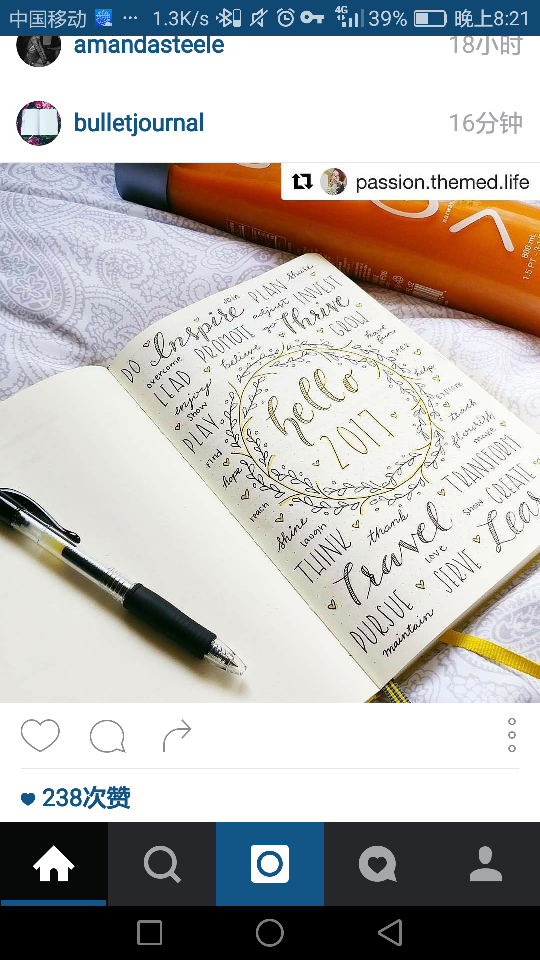 中国移动 ... 1.3K/s 4G 39% 晚上8:21
amandasteele 18小时
bulletjournal 16分钟
passion.themed.life
DO Inspire join PLAN share
overcome LEAD PROMOTE adjust go INVEST
enjoy believe Thrive GROW
show PLAY have fun
find seek
hope help
reach explore
hello
2017
teach
flourish
move
shine laugh thank TRANSFORM
THINK Travel show CREATE
love
PURSUE SERVE
maintain
800 mL
238次赞